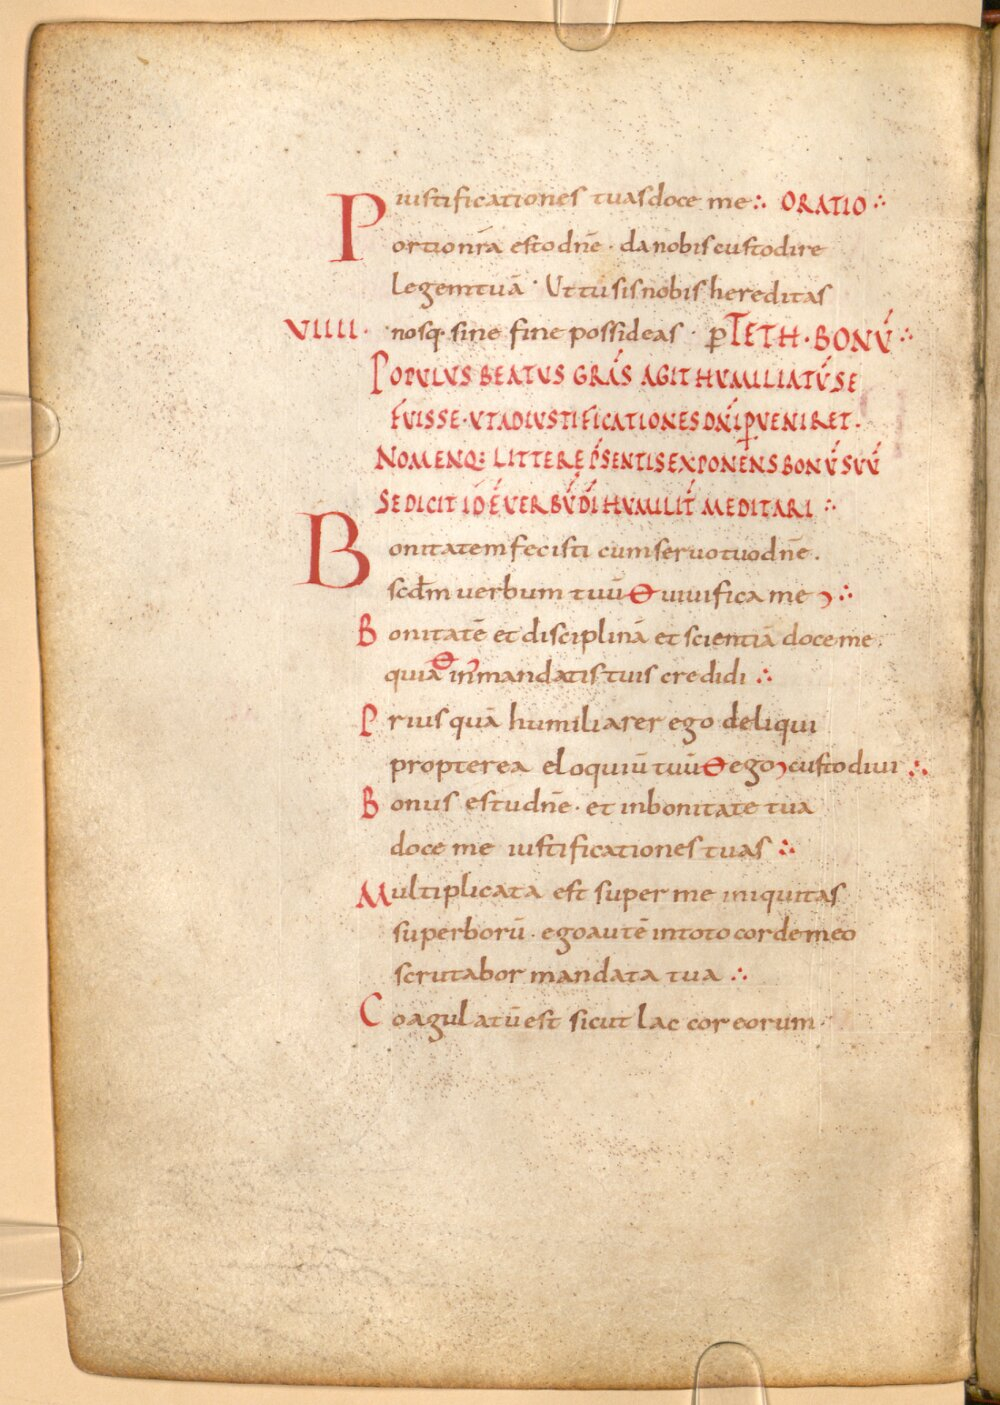 iustificationes tuas doce me ∴ ORATIO ∴
Portio nr̄a esto dn̄e · da nobis custodire
legem tuā · Ut tu sis nobis hereditas
VIIII · nosq· sine fine possideas · ꝑ TETH · BONŪ ∴
POPULUS BEATUS GRĀS AGIT HUMILIATŪ SE
FUISSE · UT AD IUSTIFICATIONES DN̄I ꝑVENIRET ·
NOMENQ: LITTERE P̄SENTIS EXPONENS BONŪ SUŪ
SE DICIT ID Ē VERBŪ DĪ HUMILIT̄ MEDITARI ∴
Bonitatem fecisti cum servo tuo dn̄e ·
scdm̄ verbum tuū Θ vivifica me ∴
Bonitatē et disciplinā et scientiā doce me ·
quiā Θ in mandatis tuis credidi ∴
Priusquā humiliarer ego deliqui
propterea eloquiū tuū Θ ego custodivi ∴
Bonus es tu dn̄e · et in bonitate tua
doce me iustificationes tuas ∴
Multiplicata est super me iniquitas
superborū · ego autē in toto corde meo
scrutabor mandata tua ∴
Coagulatū est sicut lac cor eorum ·